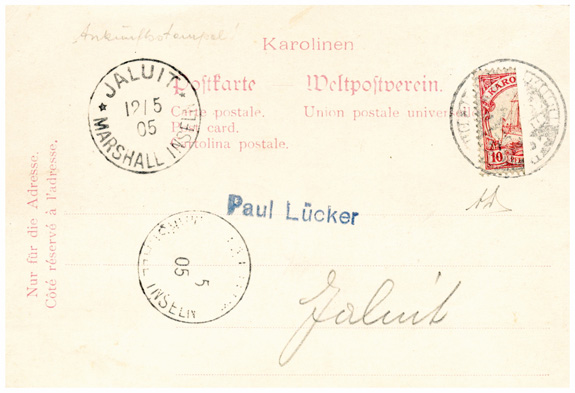 „Ankunftstempel!
Karolinen
Postkarte Weltpostverein.
Carte postale. Union postale universe
Post card.
Cartolina postale.
Nur für die Adresse.
Côté réservé à l'adresse.
* JALUIT *
12/5
05
MARSHALL INSELN
KARO
10
Paul Lücker
5
05
INSELN
Jaluit